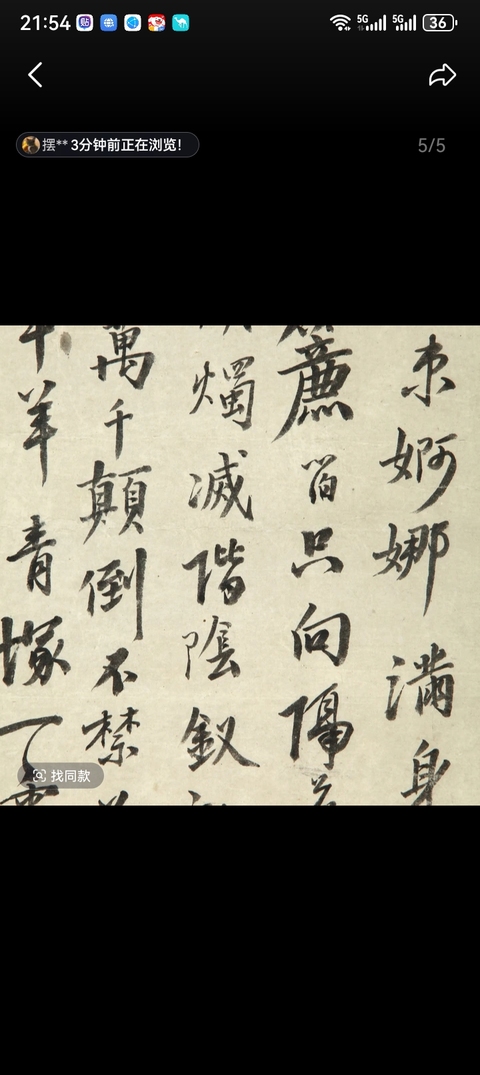 21:54
5G
5G
36
摆** 3分钟前正在浏览!
5/5
束婀娜滿身
簾留只向隔
燭滅階陰釵
萬千顛倒不禁
羊青塚一
找同款